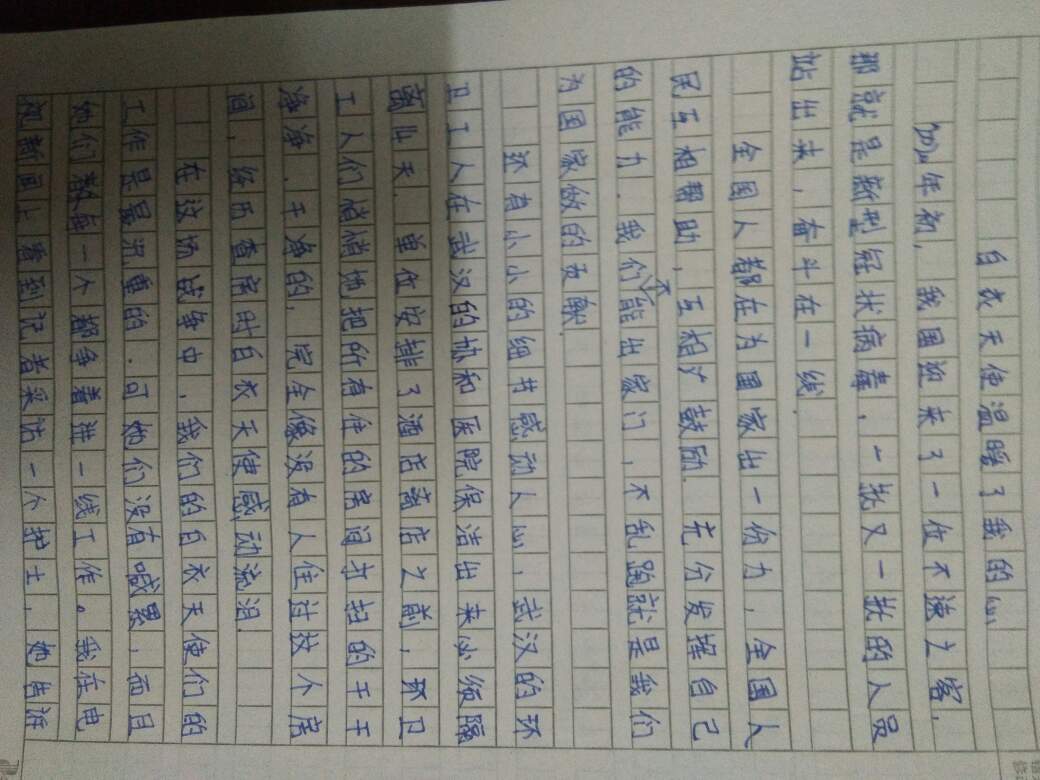 白衣天使温暖了我的心
2020年初，我国迎来了一位不速之客.
那就是新型冠状病毒，一批又一批的人员
站出来，奋斗在一线.
全国人都在为国家出一份力，全国人
民互相帮助，互相鼓励.充分发挥自己
的能力.我们不能出家门，不乱跑就是我们
为国家做的贡献.
还有小小的细节感动人心，武汉的环
卫工人在武汉的协和医院保洁出来必须隔
离14天.单位安排了酒店离店之前，环卫
工人们悄悄地把所有住的房间打扫的干干
净净.干净的，完全像没有人住过这个房
间，经历查房时白衣天使感动流泪.
在这场战争中，我们的白衣天使们的
工作是最沉重的.可她们没有喊累，而且
她们每一个都争着进一线工作。我在电
视新闻上看到记者采访一个护士，她告诉